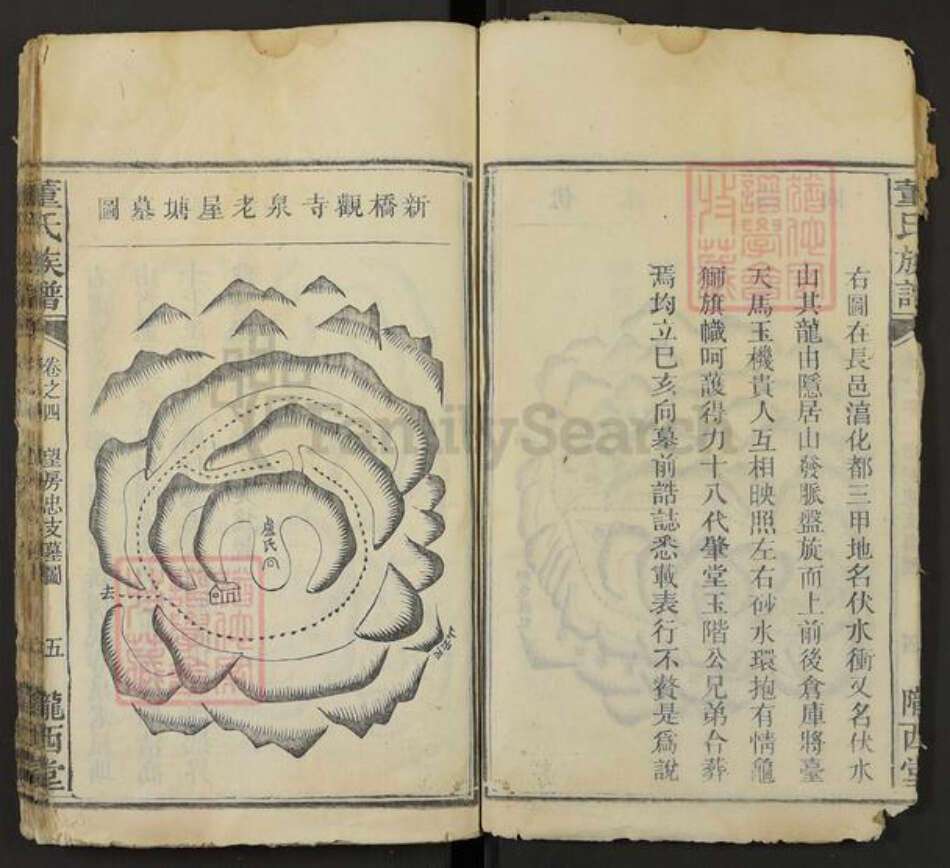 右圖在長邑淸化都三甲地名伏水衝又名伏水
山其龍由隱居山發脈盤旋而上前後倉庫將臺
天馬玉機貴人互相映照左右砂水環抱有情龜
獅旗幟呵護得力十八代肇堂玉階公兄弟合葬
焉均立巳亥向墓前誥誌悉載表行不贅是爲說
新橋觀寺泉老屋塘墓圖
盧氏
去
董氏族譜
卷之四
望房忠支墓圖
五
隴西堂
FamilySearch